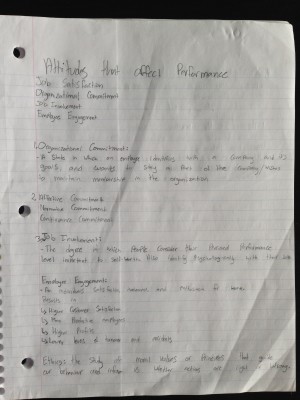 Attitudes that affect Performance
Job Satisfaction
Organizational Commitment
Job Involvement
Employee Engagement
1. Organizational Commitment:
- A state in which an employee identifies with a company and its
goals and wishes to stay as part of the company
to maintain membership in the organization
2. Affective Commitment
Normative Commitment
Continuance Commitment
3. Job Involvement:
- The degree to which people consider their Performance
level important to self-worth. Also identify psychologically with their job
Employee Engagement:
- An individual's satisfaction
Results in
↳ Higher Customer Satisfaction
↳ More Productive employees
↳ Higher Profits
↳ Lower levels of turnover and accidents
Ethics: the study of moral values or that guide
our behavior and inform us whether actions are right or wrong